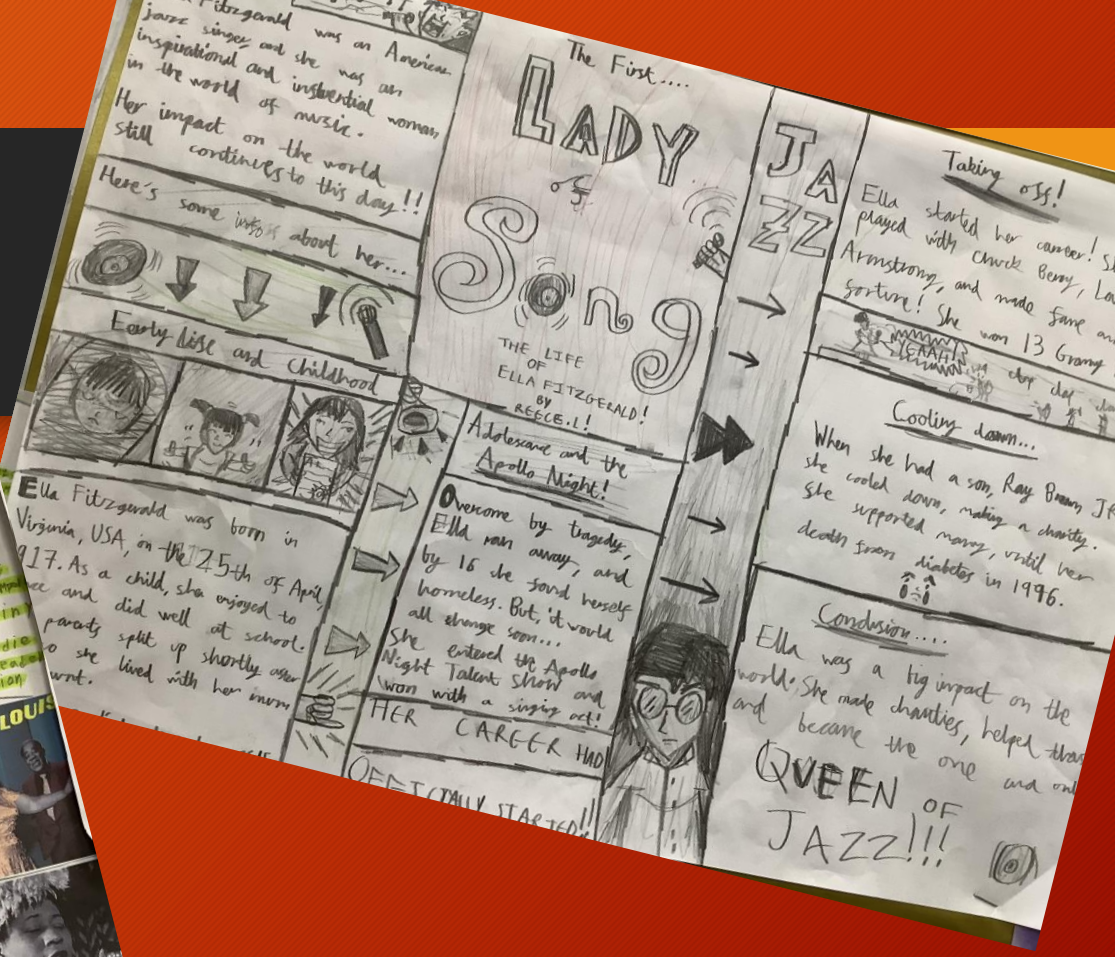 Fitzgerald was an American
jazz singer, and she was an
inspirational and influential woman
in the world of music.
Her impact on the world
still continues to this day!!
Here's some about her...
Early Life and Childhood
Ella Fitzgerald was born in
Virginia, USA, on the 25th of April,
917. As a child, she enjoyed to
and did well at school.
parents split up shortly after
so she lived with her mum
The First....
LADY
of
Song
THE LIFE
OF
ELLA FITZGERALD!
BY
REECE.L!
Adolescance and the
Apollo Night!
Overcome by tragedy,
Ella ran away, and
by 16 she found herself
homeless. But, it would
all change soon...
She entered the Apollo
Night Talent Show and
won with a singing act!
HER CAREER HAD
OFFICIALLY STARTED!!
JAZZ
Taking off!
Ella started her career!
played with Chuck Berry,
Armstrong, and made fame
fortune! She won 13
YEAAH!
clap clap
Cooling down...
When she had a son, Ray Brown
she cooled down, making a charity.
She supported many, until her
death from diabetes in 1996.
Conclusion....
Ella was a big impact on the
world. She made charities, helped
and became the one and
QUEEN OF
JAZZ!!!
LOUIS